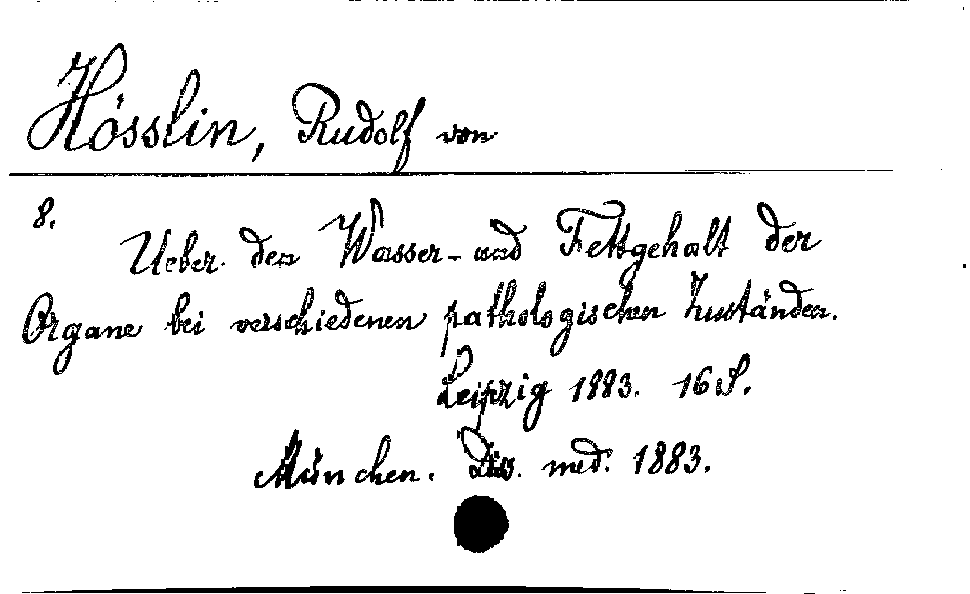 Hösslin, Rudolf von
8.
Ueber den Wasser- und Fettgehalt der
Organe bei verschiedenen pathologischen Zuständen.
Leipzig 1883. 16 S.
München. Diss. med. 1883.